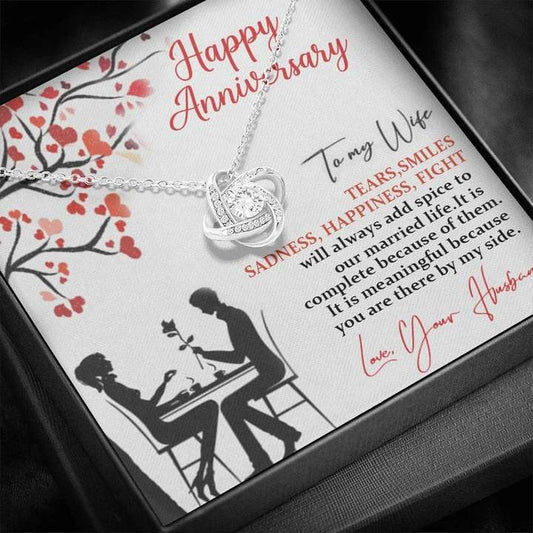 Happy
Anniversary
To my Wife
TEARS,SMILES
SADNESS, HAPPINESS, FIGHT
will always add spice to
our married life.It is
complete because of them.
It is meaningful because
you are there by my side.
Love, Your Husban